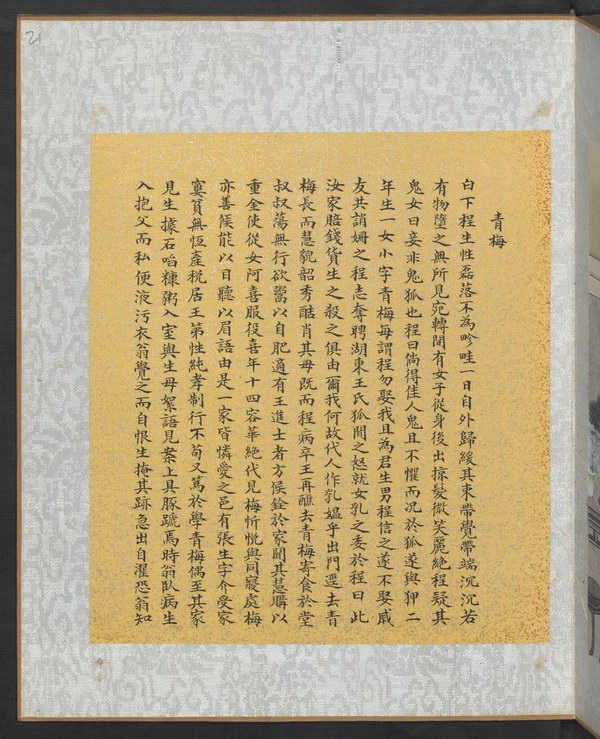 21
青梅
白下程生性磊落不為畛畦一日自外歸緩其束帶覺帶端沉沉若
有物墮之無所見宛轉間有女子從身後出掠髮微笑麗絕程疑其
鬼女曰妾非鬼狐也程曰倘得佳人鬼且不懼而況於狐遂與狎二
年生一女小字青梅每謂程勿娶我且為君生男程信之遂不娶戚
友共誚姍之程志奪聘湖東王氏狐聞之怒就女乳之委於程曰此
汝家賠錢貨生之殺之俱由爾我何故代人作乳媼乎出門逕去青
梅長而慧貌韶秀酷肖其母既而程病卒王再醮去青梅寄食於堂
叔叔蕩無行欲鬻以自肥適有王進士者方候銓於家聞其慧購以
重金使從女阿喜服役喜年十四容華絕代見梅忻悅與同寢處梅
亦善候能以目聽以眉語由是一家皆憐愛之邑有張生字介受家
窶貧無恆產稅居王第性純孝制行不苟又篤於學青梅偶至其家
見生據石啗糠粥入室與生母絮語見案上具豚蹏焉時翁臥病生
入抱父而私便液污衣翁覺之而自恨生掩其跡急出自濯恐翁知